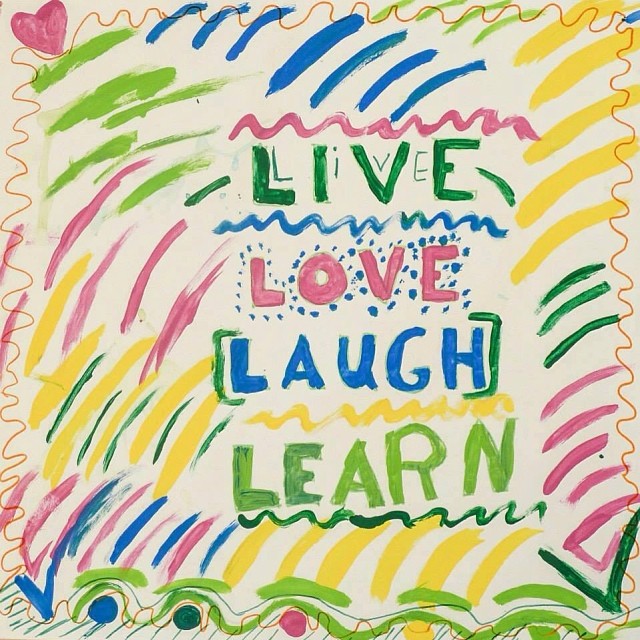 LIVE
LOVE
[LAUGH]
LEARN